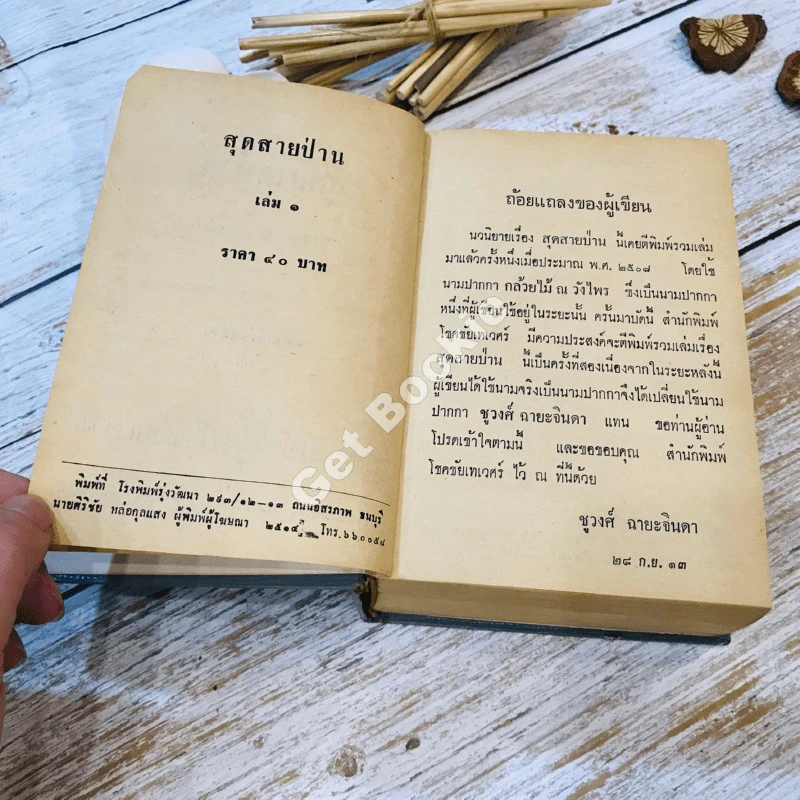 สุดสายป่าน
เล่ม ๑
ราคา ๔๐ บาท
พิมพ์ที่ โรงพิมพ์รุ่งวัฒนา ๒๙๓/๑๒–๑๓ ถนนอิสรภาพ ธนบุรี
นายศิริชัย หล่อกุลแสง ผู้พิมพ์ผู้โฆษณา ๒๕๑๔ โทร.๖๖๐๐๕๘
ถ้อยแถลงของผู้เขียน
นวนิยายเรื่อง สุดสายป่าน นี้เคยตีพิมพ์รวมเล่ม
มาแล้วครั้งหนึ่งเมื่อประมาณ พ.ศ. ๒๕๐๗ โดยใช้
นามปากกา กล้วยไม้ ณ วังไพร ซึ่งเป็นนามปากกา
หนึ่งที่ผู้เขียนใช้อยู่ในระยะนั้น ครั้นมาบัดนี้ สำนักพิมพ์
โชคชัยเทเวศร์ มีความประสงค์จะตีพิมพ์รวมเล่มเรื่อง
สุดสายป่าน นี้เป็นครั้งที่สองเนื่องจากในระยะหลังนี้
ผู้เขียนได้ใช้นามจริงเป็นนามปากกาจึงได้เปลี่ยนใช้นาม
ปากกา ชูวงศ์ ฉายะจินดา แทน ขอท่านผู้อ่าน
โปรดเข้าใจตามนี้ และขอขอบคุณ สำนักพิมพ์
โชคชัยเทเวศร์ ไว้ ณ ที่นี้ด้วย
ชูวงศ์ ฉายะจินดา
๒๘ ก.ย. ๑๓
Get Bookie